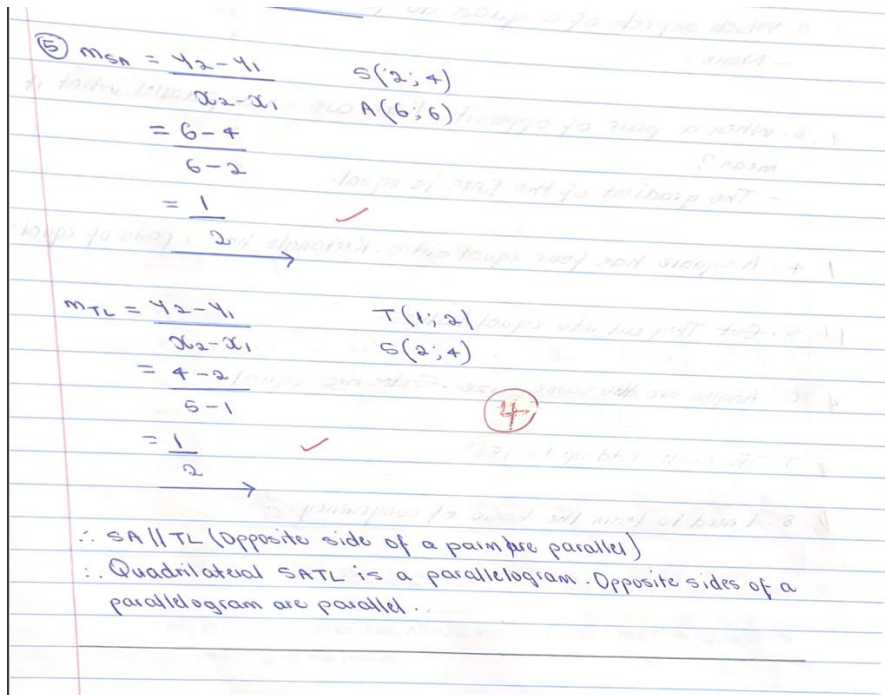 ⑤ mSA = y2-y1 / x2-x1 S(2;4)
A(6;6)
= 6-4 / 6-2
= 1/2
mTL = y2-y1 / x2-x1 T(1;2)
S(2;4)
= 4-2 / 5-1
= 1/2
4
∴ SA // TL (Opposite side of a parm are parallel)
∴ Quadrilateral SATL is a parallelogram. Opposite sides of a
parallelogram are parallel.